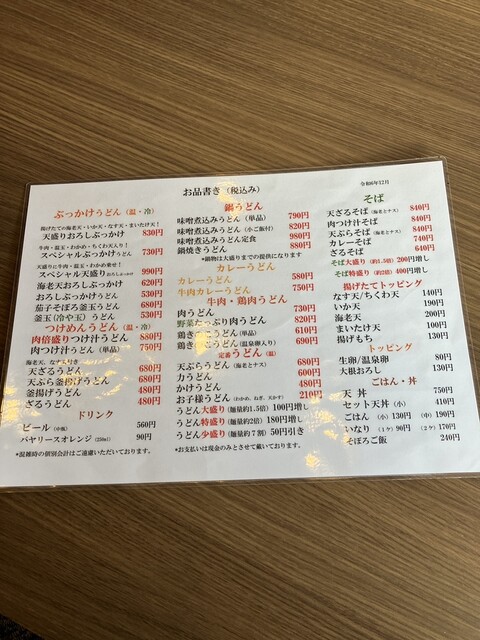 お品書き（税込み）
令和6年12月
ぶっかけうどん（温・冷）
揚げたての海老天・いか天・なす天・まいたけ天！
天盛りおろしぶっかけ 830円
牛肉・温玉・わかめ・ちくわ天入り！
スペシャルぶっかけうどん 730円
天盛りに牛肉・温玉・わかめ乗せ！
スペシャル天盛りおろしぶっかけ 990円
海老天おろしぶっかけ 620円
おろしぶっかけうどん 530円
茄子そぼろ釜玉うどん 680円
釜玉（冷や玉）うどん 530円
つけめんうどん（温・冷）
肉倍盛りつけ汁うどん 880円
肉つけ汁うどん（単品） 750円
海老天、なす天付き
天ざるうどん 680円
天ぷら釜揚げうどん 680円
釜揚げうどん 480円
ざるうどん 480円
ドリンク
ビール（中瓶） 560円
バヤリースオレンジ 90円
*混雑時の個別会計はご遠慮いただいております。
鍋うどん
味噌煮込みうどん（単品） 790円
味噌煮込みうどん（小ご飯付） 880円
味噌煮込みうどん定食 980円
鍋焼きうどん 880円
*鍋物は大盛りまでの提供になります
カレーうどん
カレーうどん 580円
牛肉カレーうどん 750円
牛肉・鶏肉うどん
肉うどん 730円
野菜たっぷり肉うどん 820円
鶏ききうどん（単品） 610円
鶏ききうどん（温泉卵入り） 690円
定番うどん（温）
天ぷらうどん（海老とナス） 680円
力うどん 600円
かけうどん 480円
お子様うどん（わかめ、ねぎ、天かす） 210円
うどん大盛り（麺量約1.5倍）100円増し
うどん特盛り（麺量約2倍）180円増し
うどん少盛り（麺量約7割）50円引き
*お支払いは現金のみとさせて戴いております。
そば
天ざるそば（海老とナス） 840円
肉つけ汁そば 840円
天ぷらそば（海老とナス） 840円
カレーそば 740円
ざるそば 640円
そば大盛り（約1.5倍）200円増し
そば特盛り（約2倍）400円増し
揚げたてトッピング
なす天/ちくわ天 140円
いか天 190円
海老天 200円
まいたけ天 100円
揚げもち 130円
トッピング
生卵/温泉卵 80円
大根おろし 130円
ごはん・丼
天丼 750円
セット天丼（小） 410円
ごはん（小）130円（中）190円
いなり（1ヶ）90円（2ヶ）170円
そぼろご飯 240円